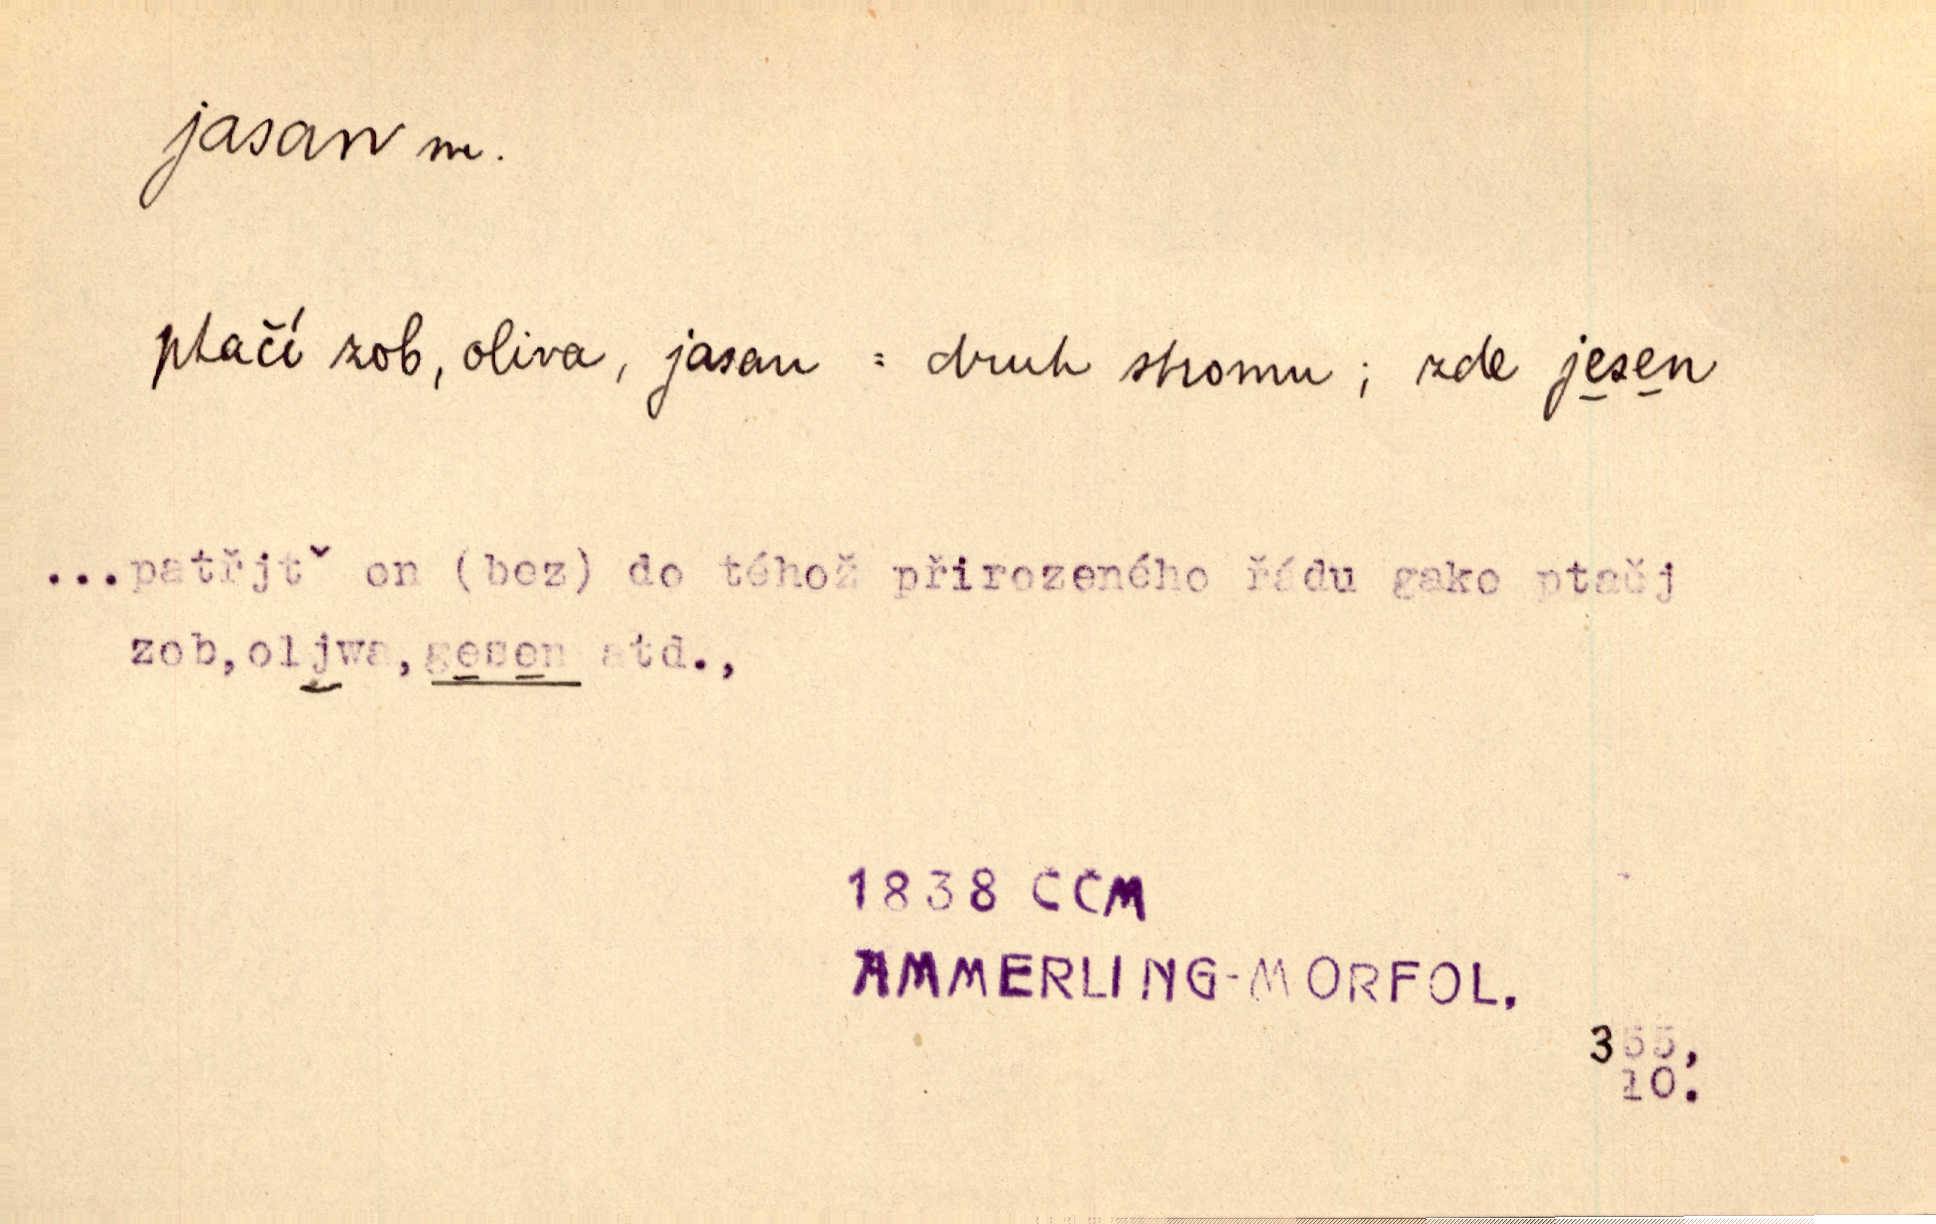 jasan m.
ptačí zob, oliva, jasan = druh stromu ; zde jesen
...patřjtˇ on (bez) do téhož přirozeného řádu gako ptačj
zob,oljwa,gesen atd.,
1838 ČČM
AMMERLING-MORFOL.
355,
10.